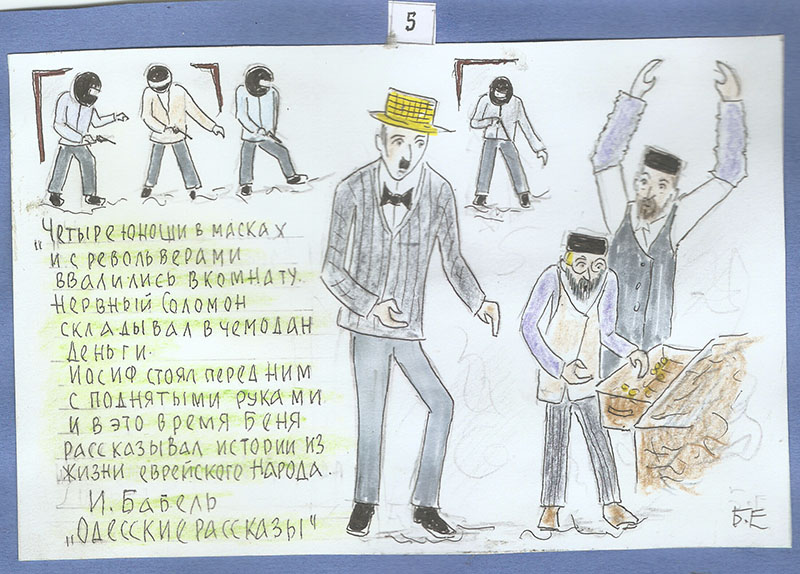 5
"Четыре юноши в масках
и с револьверами
ввалились в комнату.
Нервный Соломон
складывал в чемодан
деньги.
Иосиф стоял перед ним
с поднятыми руками
и в это время Беня
рассказывал истории из
жизни еврейского народа.
И. Бабель
„Одесские рассказы"
Б.Е